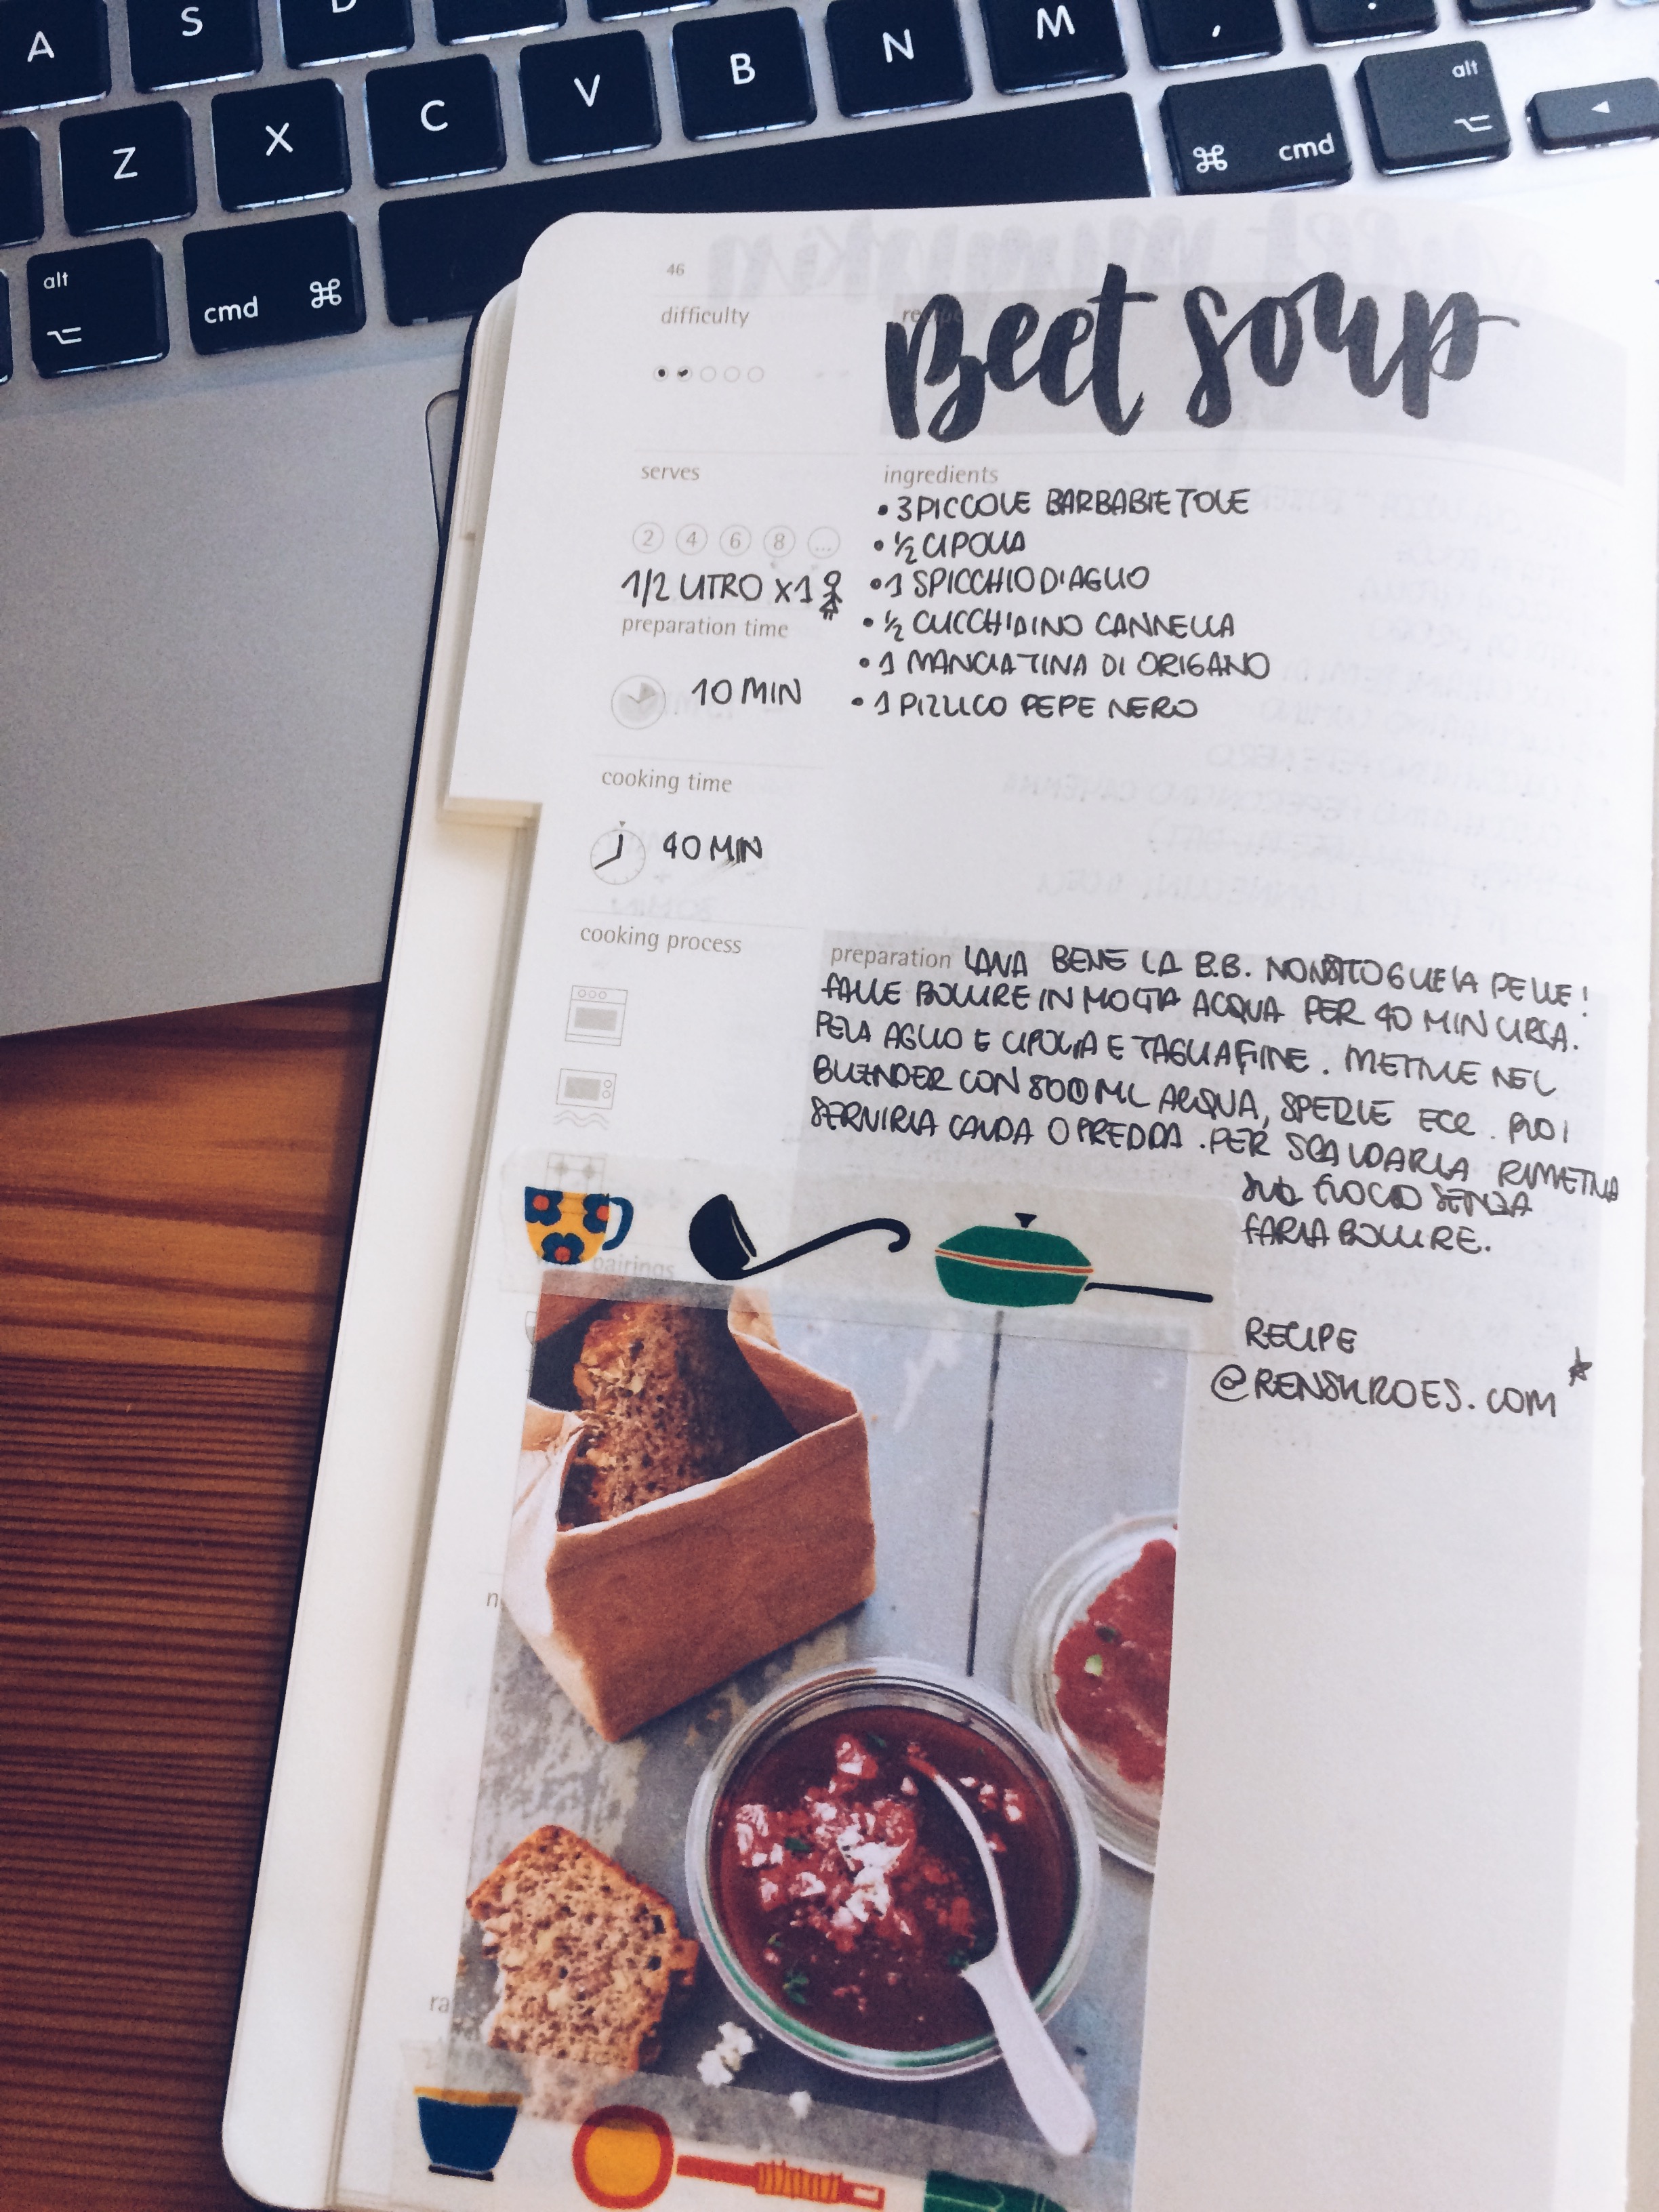 A S D
Z X C V B N M ,
alt cmd ⌘
⌘ cmd alt
46
difficulty
Beet soup
serves
2 4 6 8 ...
1/2 LITRO X1
preparation time
10 MIN
cooking time
40 MIN
cooking process
ingredients
• 3 PICCOLE BARBABIETOLE
• ½ CIPOLLA
• 1 SPICCHIO D'AGLIO
• ½ CUCCHIAINO CANNELLA
• 1 MANCIATINA DI ORIGANO
• 1 PIZZICO PEPE NERO
preparation LAVA BENE LA B.B. NON TOGLIE LA PELLE!
FALLE BOLLIRE IN MOLTA ACQUA PER 40 MIN CIRCA.
PELA AGLIO E CIPOLLA E TAGLIA FINE. METTILE NEL
BLENDER CON 800 ML ACQUA, SPEZIE ECC. PUOI
SERVIRLA CALDA O FREDDA. PER SCALDARLA RIMETTILA
SUL FUOCO SENZA
FARLA BOLLIRE.
pairings
RECIPE
@RENSKROES.COM
ra